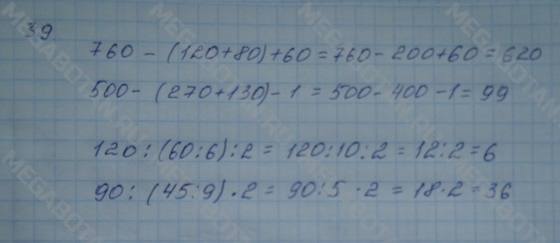 39
760 - (120+80)+60 = 760 - 200+60 = 620
500 - (270+130) - 1 = 500 - 400 - 1 = 99
120 : (60:6) : 2 = 120:10:2 = 12:2 = 6
90 : (45:9) · 2 = 90:5 · 2 = 18·2 = 36